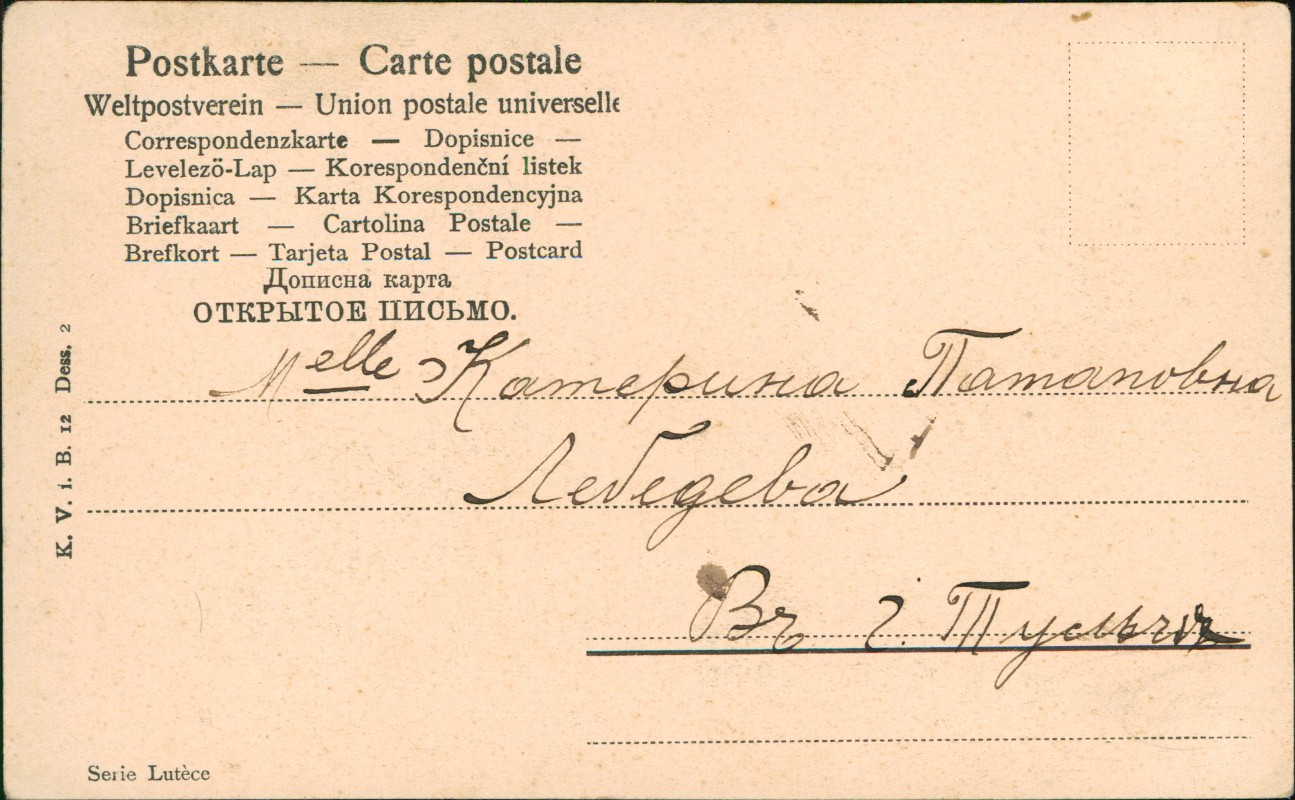 Postkarte — Carte postale
Weltpostverein — Union postale universelle
Correspondenzkarte — Dopisnice —
Levelező-Lap — Korespondenční listek
Dopisnica — Karta Korespondencyjna
Briefkaart — Cartolina Postale —
Brefkort — Tarjeta Postal — Postcard
Дописна карта
ОТКРЫТОЕ ПИСЬМО.
Melle Катерина Патаповна
Лебедева
Въ г.
K. V. i. B. 12 Dess. 2
Serie Lutèce